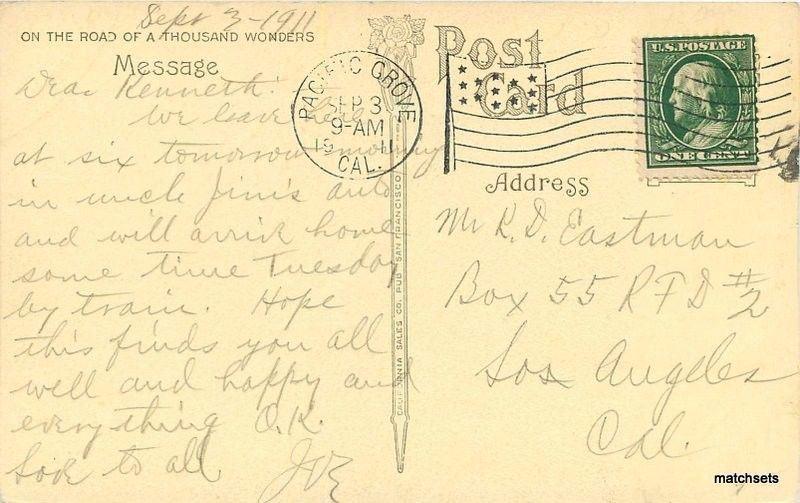 Sept 3-1911
ON THE ROAD OF A THOUSAND WONDERS
Message
Dear Kenneth:
We leave here
at six tomorrow morning
in uncle Jim's auto
and will arrive home
some time Tuesday
by train. Hope
this finds you all
well and happy and
everything O.K.
Love to all
CALIFORNIA SALES CO. PUB. SAN FRANCISCO
Post
Card
PACIFIC GROVE
SEP 3
9-AM
19 11
CAL.
U.S. POSTAGE
ONE CENT
Address
Mr R. D. Eastman
Box 55 R F D #2
Los Angeles
Cal.
matchsets